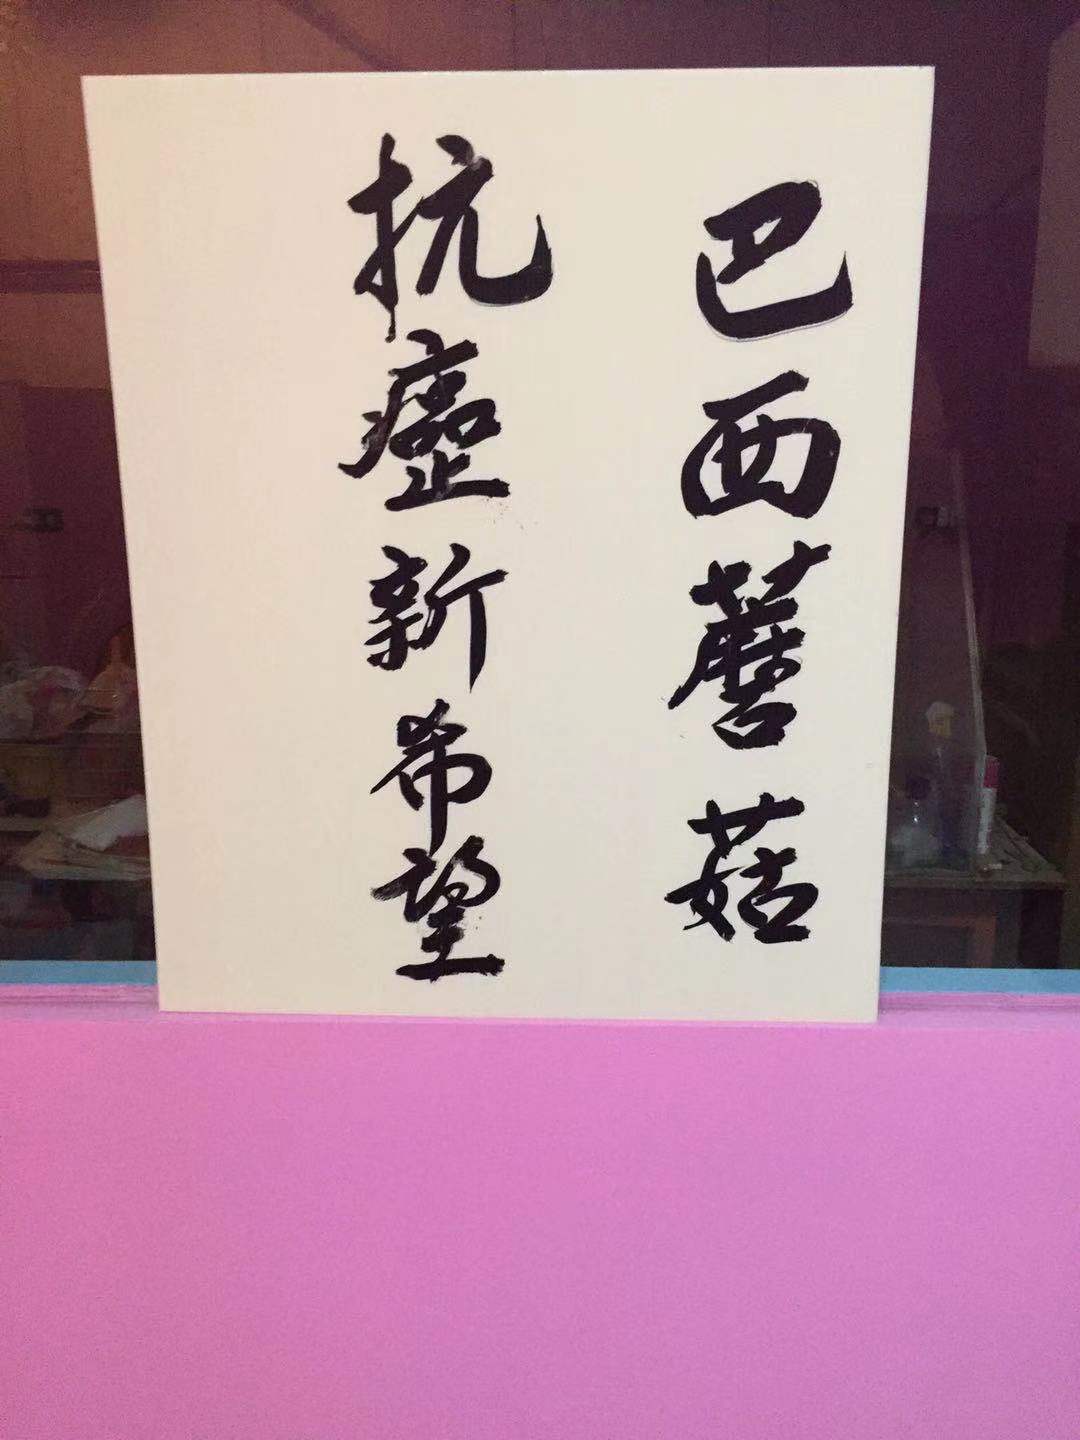 巴西蘑菇
抗癌新希望